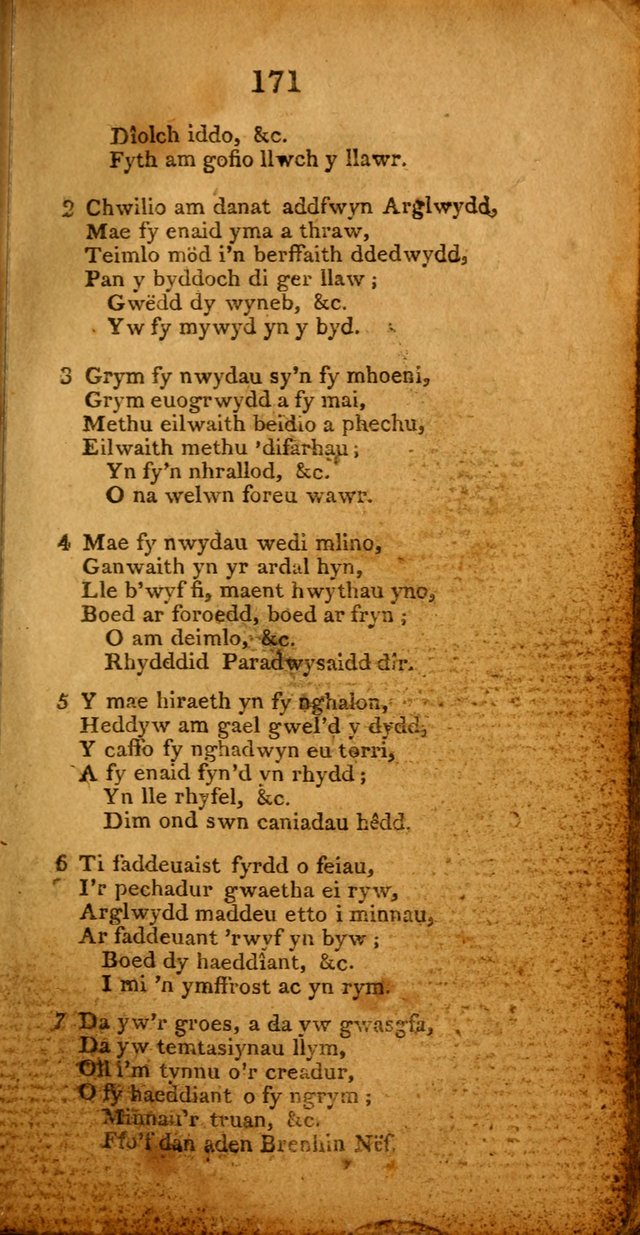 171
Dîolch iddo, &c.
Fyth am gofio llwch y llawr.
2 Chwilio am danat addfwyn Arglwydd,
Mae fy enaid yma a thraw,
Teimlo möd i'n berffaith ddedwydd,
Pan y byddoch di ger llaw;
Gwëdd dy wyneb, &c.
Yw fy mywyd yn y byd.
3 Grym fy nwydau sy'n fy mhoeni,
Grym euogrwydd a fy mai,
Methu eilwaith beidio a phechu,
Eilwaith methu 'difarhau;
Yn fy'n nhrallod, &c.
O na welwn foreu wawr.
4 Mae fy nwydau wedi mlino,
Ganwaith yn yr ardal hyn,
Lle b'wyf fi, maent hwythau yno,
Boed ar foroedd, boed ar fryn;
O am deimlo, &c.
Rhydddid Paradwysaidd dîr.
5 Y mae hiraeth yn fy nghalon,
Heddyw am gael gwel'd y dydd,
Y caffo fy nghadwyn eu torri,
A fy enaid fyn'd yn rhydd;
Yn lle rhyfel, &c.
Dim ond swn caniadau hêdd.
6 Ti faddeuaist fyrdd o feiau,
I'r pechadur gwaetha ei ryw,
Arglwydd maddeu etto i minnau,
Ar faddeuant 'rwyf yn byw;
Boed dy haeddîant, &c.
I mi 'n ymffrost ac yn rym.
7 Da yw'r groes, a da yw gwasgfa,
Da yw temtasiynau llym,
Oll i'm tynnu o'r creadur,
O fy haeddiant o fy ngrym;
Minnau'r truan, &c.
Ffo'f dan aden Brenhin Nëf.